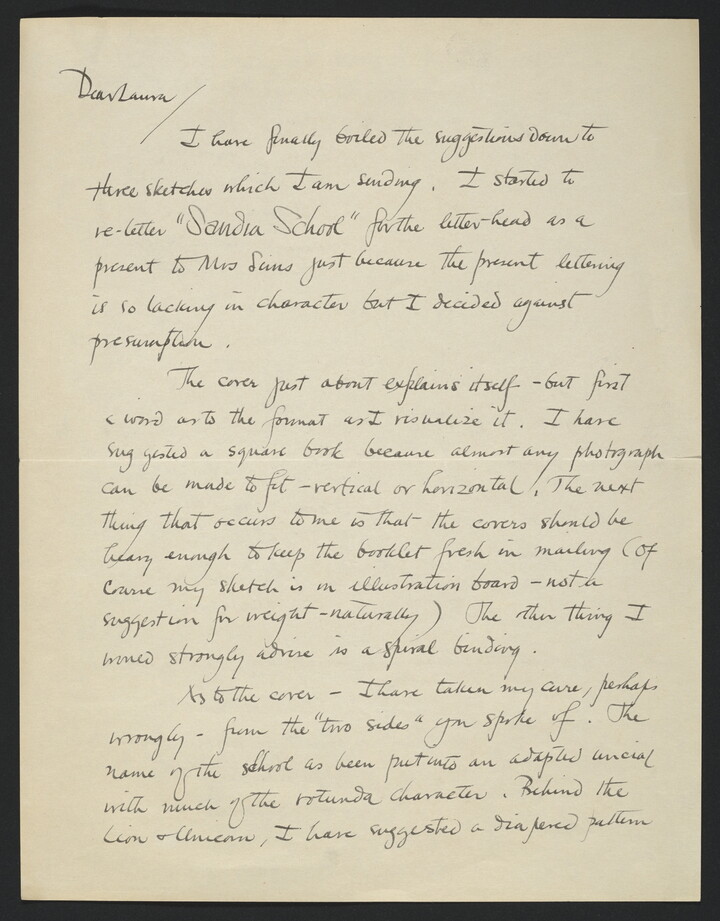 Dear Laura/
I have finally boiled the suggestions down to
three sketches which I am sending. I started to
re-letter "Sandia School" for the letter-head as a
present to Mrs Sims just because the present lettering
is so lacking in character but I decided against
presumption.
The cover just about explains itself - but first
a word as to the format as I visualize it. I have
suggested a square book because almost any photograph
can be made to fit - vertical or horizontal. The next
thing that occurs to me is that the covers should be
heavy enough to keep the booklet fresh in mailing (of
course my sketch is on illustration board - not a
suggestion for weight - naturally) The other thing I
would strongly advise is a spiral binding.
As to the cover - I have taken my cue, perhaps
wrongly - from the "two sides" you spoke of. The
name of the school as been put into an adapted uncial
with much of the rotunda character. Behind the
Lion & Unicorn, I have suggested a diapered pattern